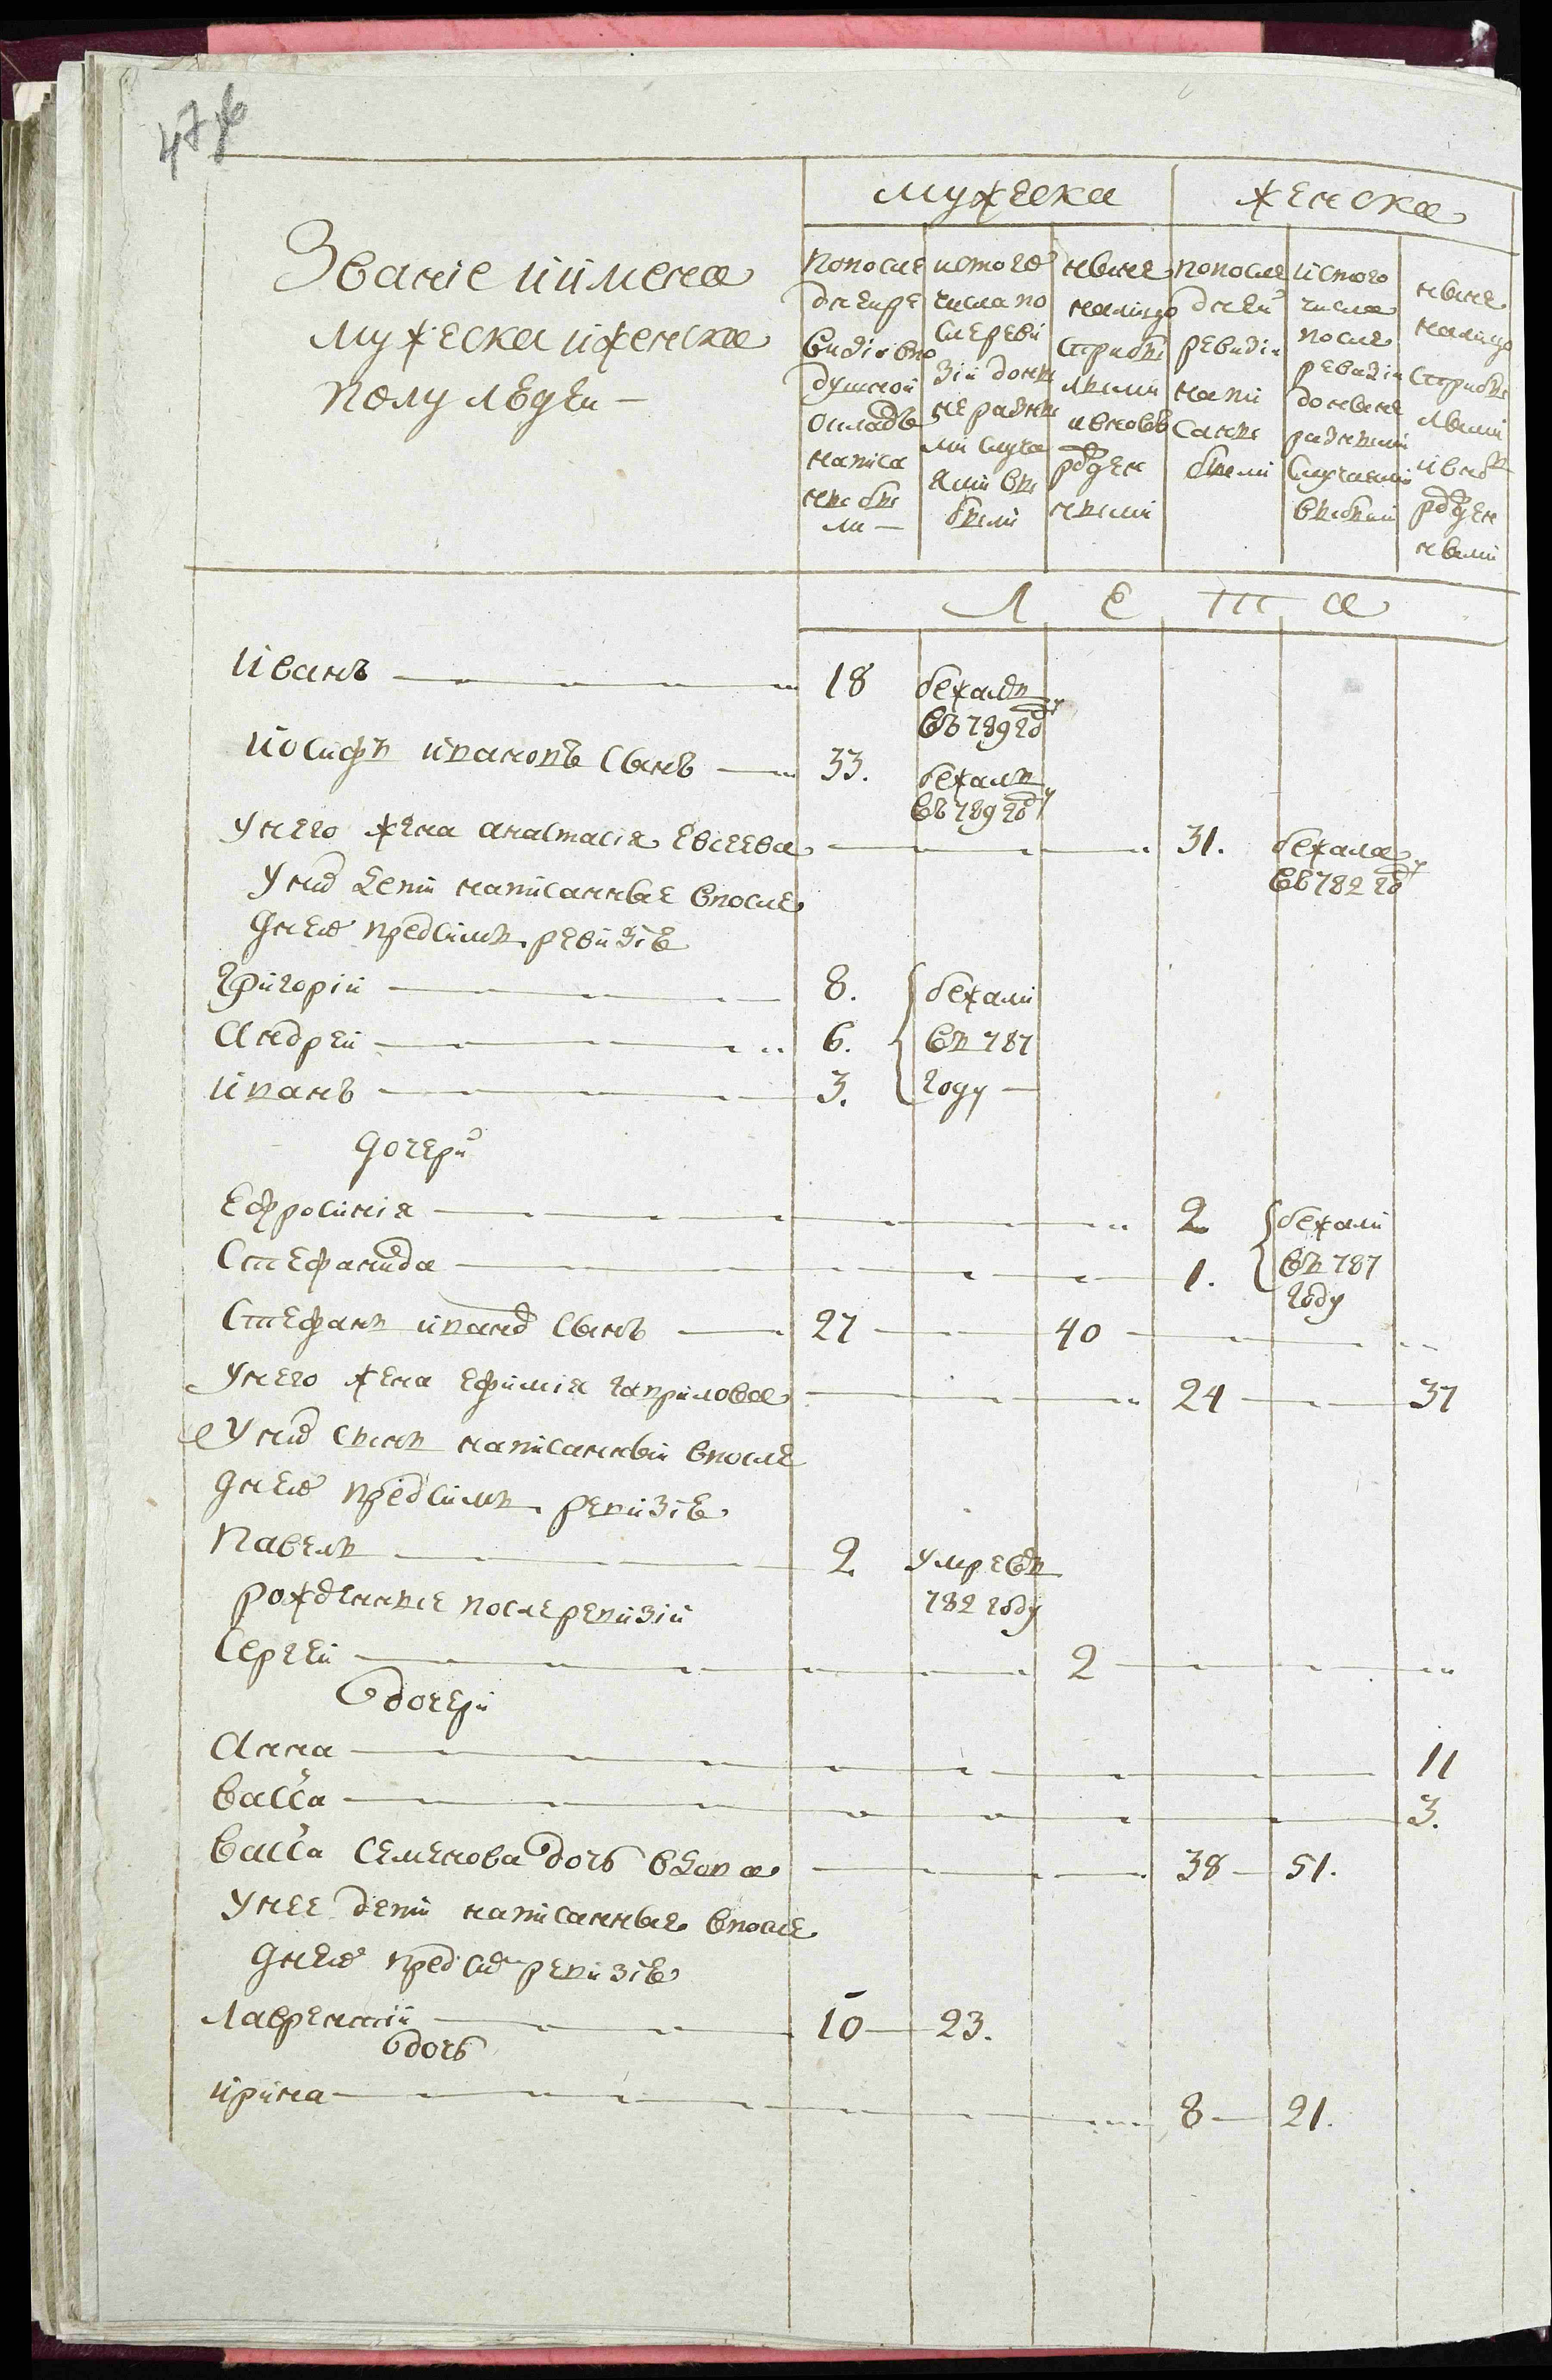 476
мужеска женска
Званіе иимена
мужеска иженска
полу людеи —
попосле
днеире
визіи впо
душной
окладъ
написа
ны бы
ли —
истого
числа по
сле реви
зіи донын
не разны
ми случа
ями вы
были
ныне
налицо
сприбы
лыми
ивновь
рожден
ными
попосле
дней
ревизіи
напи
саны
были
истого
числа
после
ревизіи
доныне
разными
случаями
выбыли
ныне
налицо
сприбы
лыми
ивнов
рожден
ными
Л е т а
Иванъ 18 бежалъ
въ 789 году
Иосифъ ивановъ сынъ 33. бежалъ
въ 789 году
унего жена анастасія евсеева 31. бежала
въ 782 году
униx дети написанные впосле
днею предсимъ ревизіе
Григорій 8. бежали
Андрей 6. въ 787
иванъ 3. году —
дочери
Ефросинія 2 бежали
Стефанида 1. въ 787
году
Стефанъ иванов сынъ 27 40
унего жена ефимія гаврилова 24 37
униx сынъ написанный впосле
днею предсимъ ревизіе
Павелъ 2 умре въ
782 году
рожденные после ревизіи
Сергей 2
дочери
Анна 11
васса 3.
васса семенова дочь вдова 38 — 51.
унее дети написанные впосле
днею предсим ревизіе
лаврентій 10 — 23.
дочь
ирина 8 — 21.